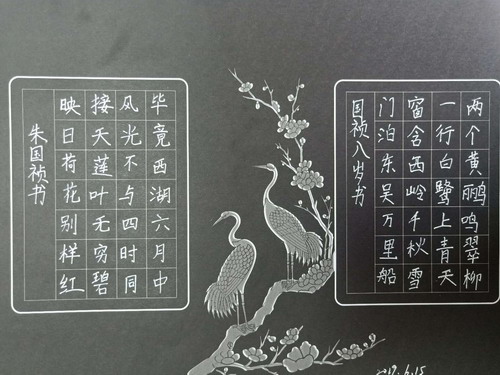 两个黄鹂鸣翠柳
一行白鹭上青天
窗含西岭千秋雪
门泊东吴万里船
国祯八岁书
毕竟西湖六月中
风光不与四时同
接天莲叶无穷碧
映日荷花别样红
朱国祯书